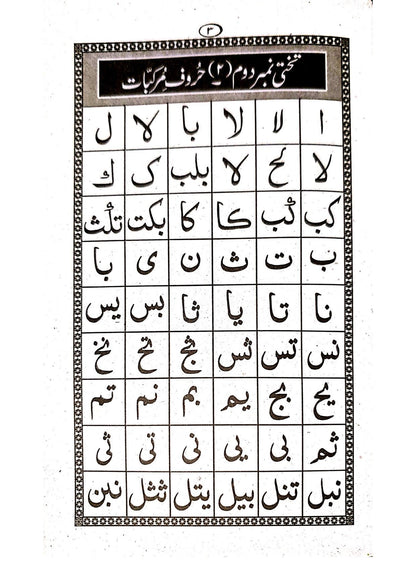 ۳
تختی نمبر دوم (۲) حُروفِ مرکبات
ا لا لا با لا ل
لا لح لا بلب ک ك
کب کُب کا کا بکت تلث
ب ت ث ن ی با
نا تا یا ثا بس یس
نس تس ثس نج تح نخ
یح بج یم بم نم تم
ثم بی یی نی تی ثی
نبل تنل بیل یتل ثثل نبن